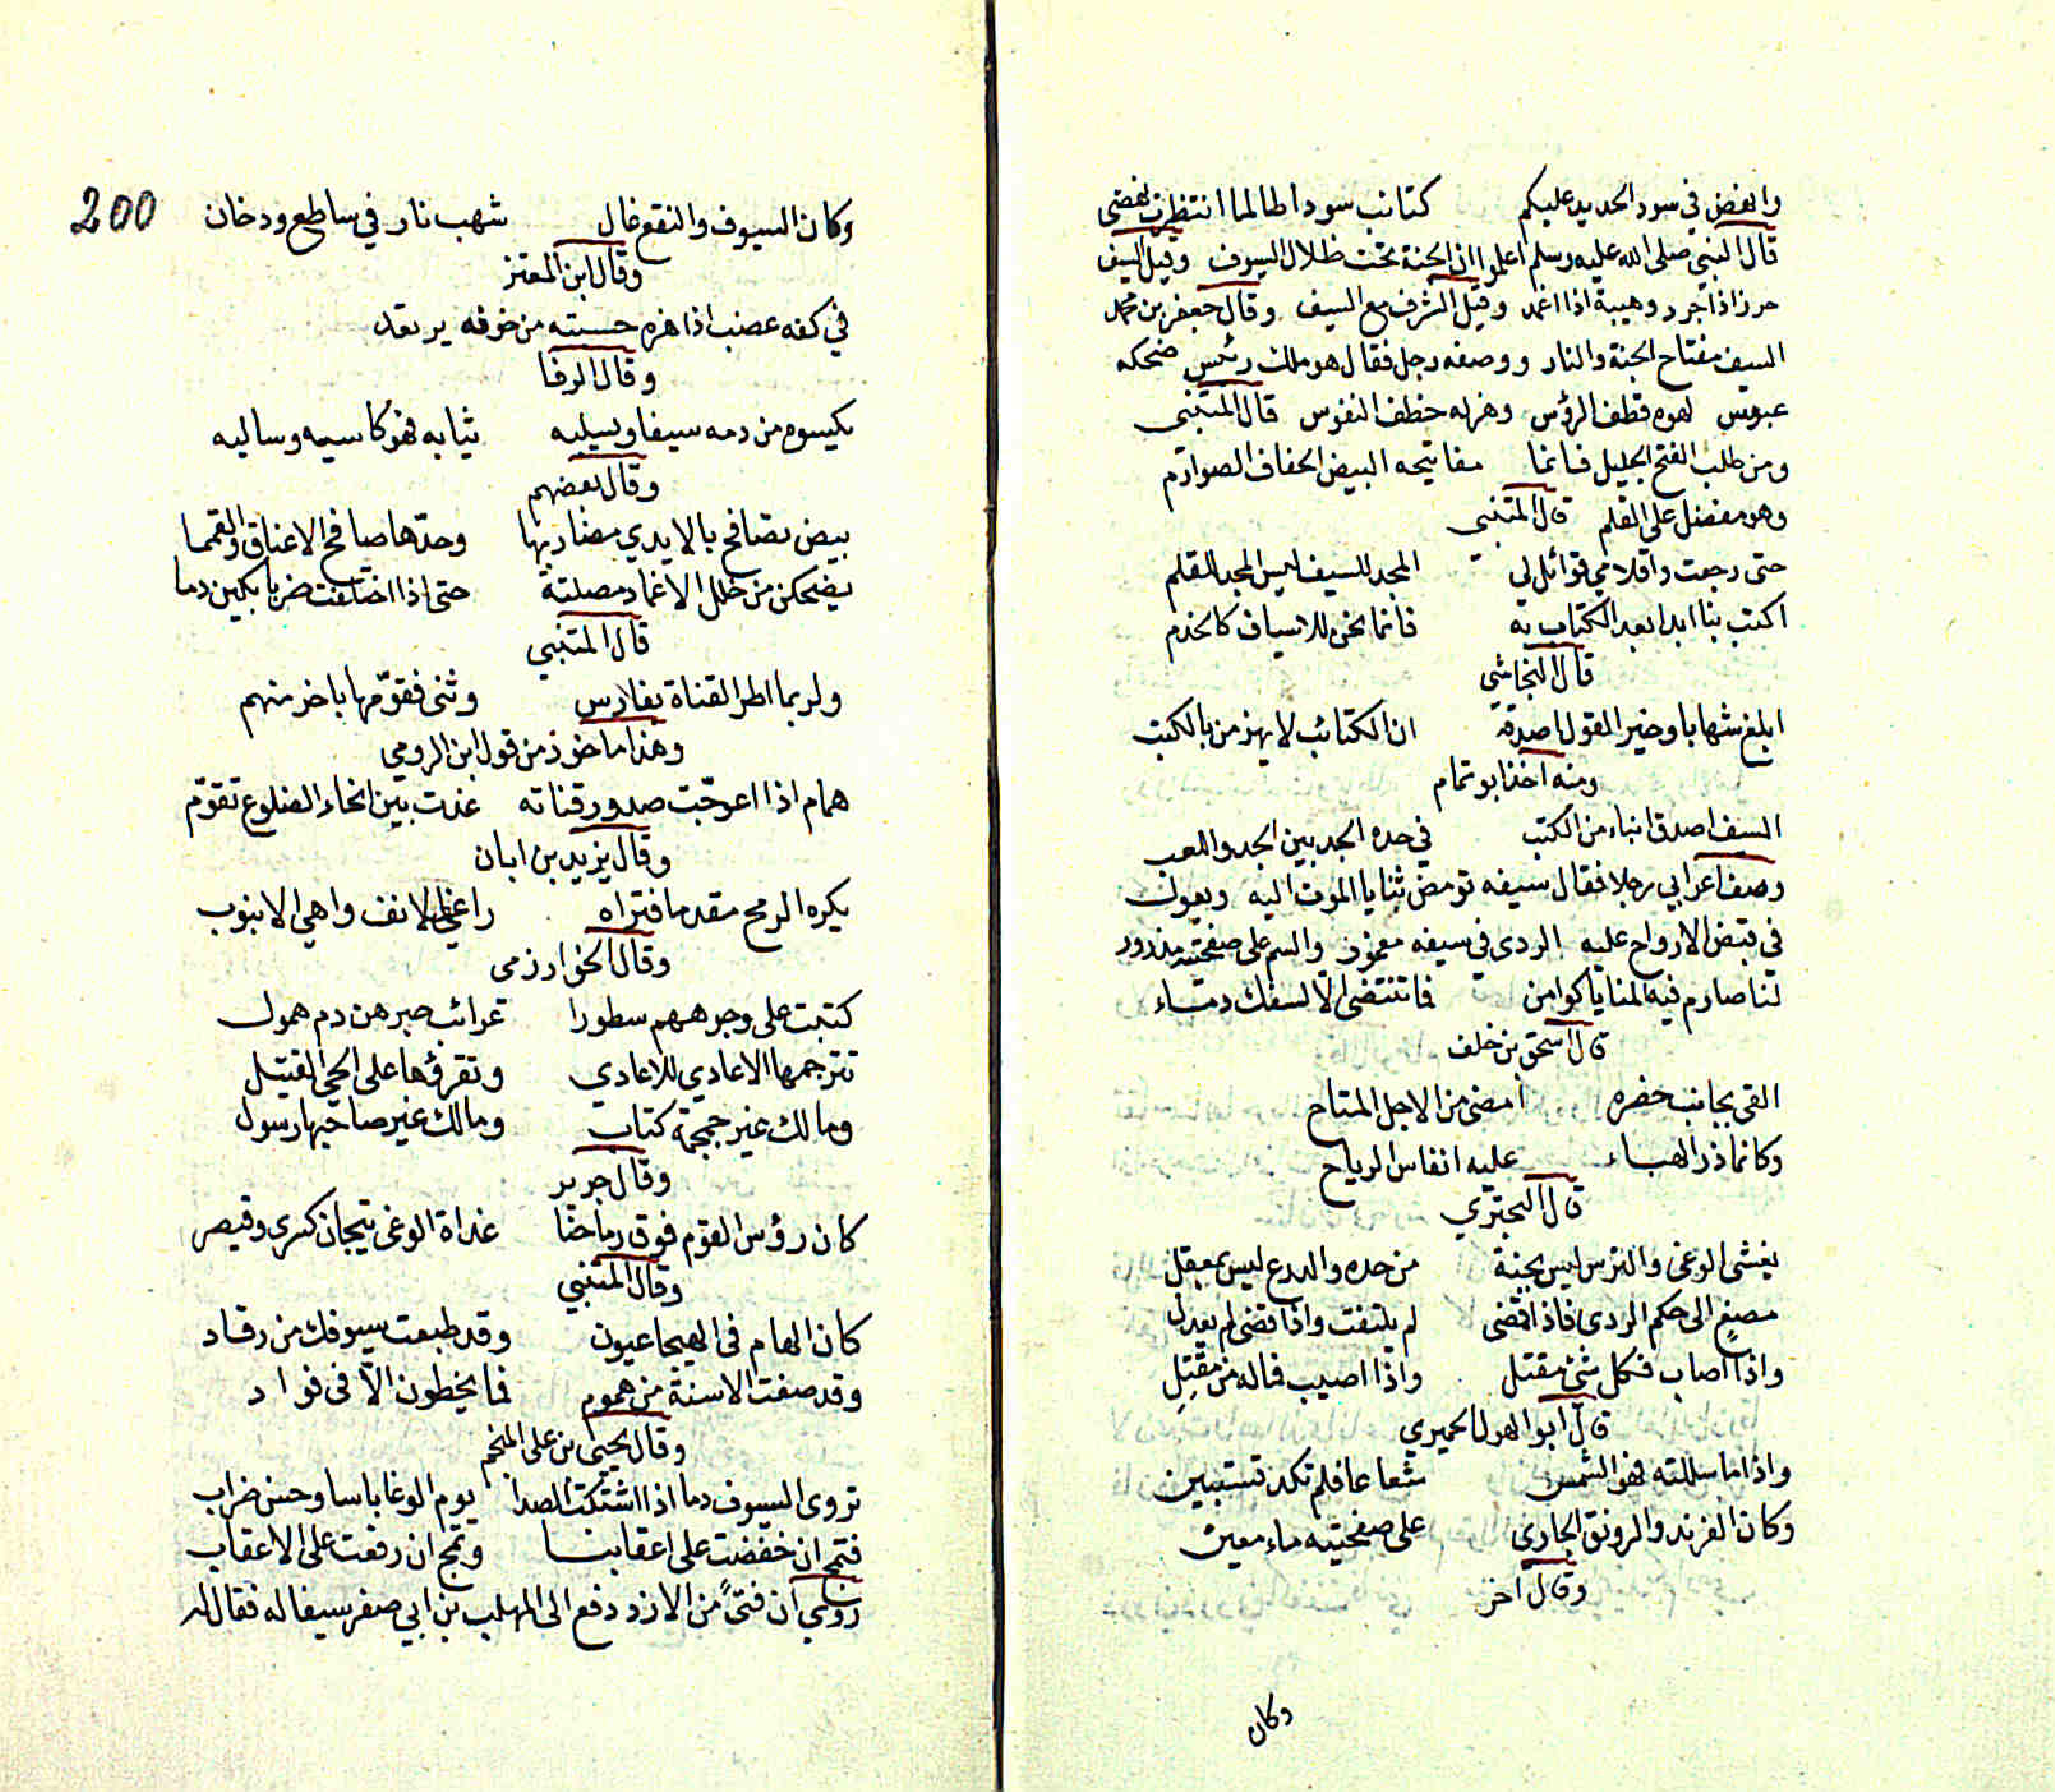 وانهض في سود الحديد عليكم كتائب سودا طالما انتظرت نهضي
قال النبي صلى الله عليه وسلم اعلموا ان الجنة تحت ظلال السيوف وقيل السيف
حرز اذا جرد وهيبة اذا اغمد وقيل الشرف مع السيف وقال جعفر بن محمد
السيف مفتاح الجنة والنار ووصفه رجل فقال هو ملك رئيس ضحكه
عبوس لهوه قطف الرؤس وهزله خطف النفوس قال المتنبي
ومن طلب الفتح الجليل فانما مفاتيحه البيض الخفاف الصوارم
وهو مفضل على القلم قال المتنبي
حتى رجعت واقلامي قوائل لي المجد للسيف ليس المجد للقلم
اكتب بنا ابدا بعد الكتاب به فانما نحن للاسياف كالخدم
قال النجاشي
ابلغ شهابا وخير القول اصدقه ان الكتائب لا يهزمن بالكتب
ومنه اخذ ابو تمام
السيف اصدق انباء من الكتب في حده الحد بين الجد واللعب
وصف اعرابي رجلا فقال سيفه تومض ثنايا الموت اليه ويعول
في قبض الارواح عليه الردى في سيفه مغموز والسم على صفحته مذرور
لنا صارم فيه المنايا كوامن فما تنتضى الا لسفك دماء
قال اسحق بن خلف
القى بجانب خصره امضى من الاجل المتاح
وكانما ذر الهباء عليه انفاس الرياح
قال البحتري
يغشى الوغى والترس ليس بجنة من حده والدرع ليس بمعقل
مصغ الى حكم الردى فاذا قضى لم يلتفت واذا قضى لم يعدل
واذا اصاب فكل شئ مقتل واذا اصيب فماله من مقتل
قال ابو الهول الحميري
واذا ما سللته فهو الشمس شعاعا فلم تكد تستبين
وكان الفرند والرونق الجارى على صفحتيه ماء معين
وقال اخر
وكان
200
وكان السيوف والنقع عال شهب نار في ساطع ودخان
وقال ابن المعتز
في كفه عضب اذا هزه حسبته من خوفه يرتعد
وقال الرفا
يكسوه من دمه سيفا ويسلبه ثيابه فهو كاسيه وسالبه
وقال بعضهم
بيض تصافح بالايدي مضاربها وحدها صافح الاعناق والقمما
يضحكن من خلل الاغماد مصلتة حتى اذا اختلفت ضربا بكين دما
قال المتنبي
ولربما اطر القناة بفارس وثنى فقومها باخر منهم
وهذا ماخوذ من قول ابن الرومي
همام اذا اعوجت صدور قناته غدت بين انحاء الضلوع تقوم
وقال يزيد بن ابان
يكره الرمح مقدما فتراه راغم الانف واهي الانبوب
وقال الخوارزمى
كتبت على وجوههم سطورا غرائب حبرهن دم همول
تترجمها الاعادي للاعادي وتقرؤها على الحي القتيل
ومالك غير جمجمة كتاب ومالك غير صاحبها رسول
وقال جرير
كان رؤس القوم فوق رماحنا غداة الوغى تيجان كسرى وقيصر
وقال المتنبي
كان الهام فى الهيجا عيون وقد طبعت سيوفك من رقاد
وقد صغت الاسنة من هموم فما يخطرن الا فى فواد
وقال يحيى بن على المنجم
تروى السيوف دما اذا اشتكت الصدا يوم الوغا باسا وحسن ضراب
فتمج ان خفضت على اعقابنا وتمج ان رفعت على الاعقاب
روي ان فتى من الازد دفع الى المهلب بن ابي صفر سيفا له فقال له